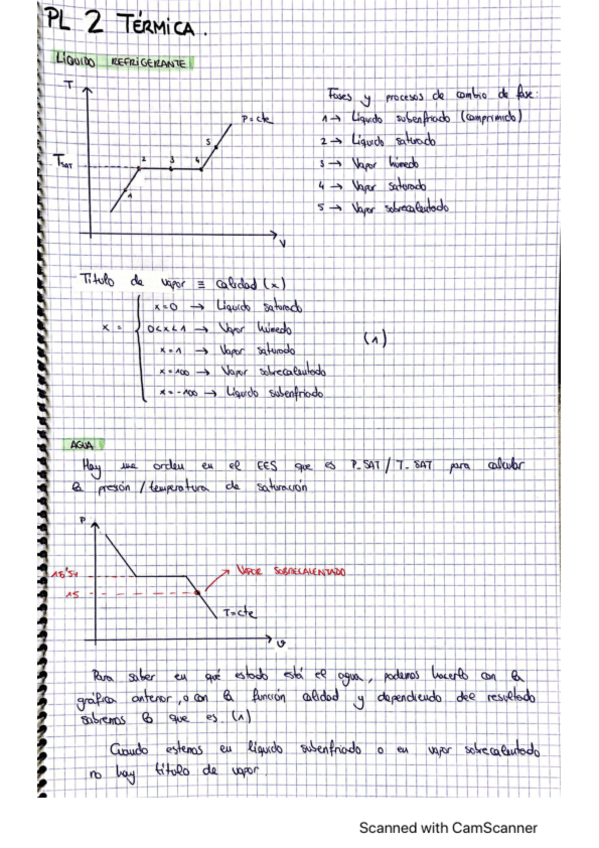 PL 2 TÉRMICA.
LÍQUIDO REFRIGERANTE
T
P=cte
TSAT
1
2
3
4
5
V
Fases y procesos de cambio de fase:
1 → Líquido subenfriado (comprimido)
2 → Líquido saturado
3 → Vapor húmedo
4 → Vapor saturado
5 → Vapor sobrecalentado
Título de vapor ≡ calidad (x)
x = {
x=0 → Líquido saturado
0<x<1 → Vapor húmedo
x=1 → Vapor saturado
x=100 → Vapor sobrecalentado
x=-100 → Líquido subenfriado
(1)
AGUA
Hay una orden en el EES que es P_SAT / T_SAT para calcular
la presión / temperatura de saturación.
P
15'54
15
→ VAPOR SOBRECALENTADO
T=cte
v
Para saber en qué estado está el agua, podemos hacerlo con la
gráfica anterior, o con la función calidad y dependiendo del resultado
sabremos lo que es (1)
Cuando estemos en líquido subenfriado o en vapor sobrecalentado
no hay título de vapor.
Scanned with CamScanner